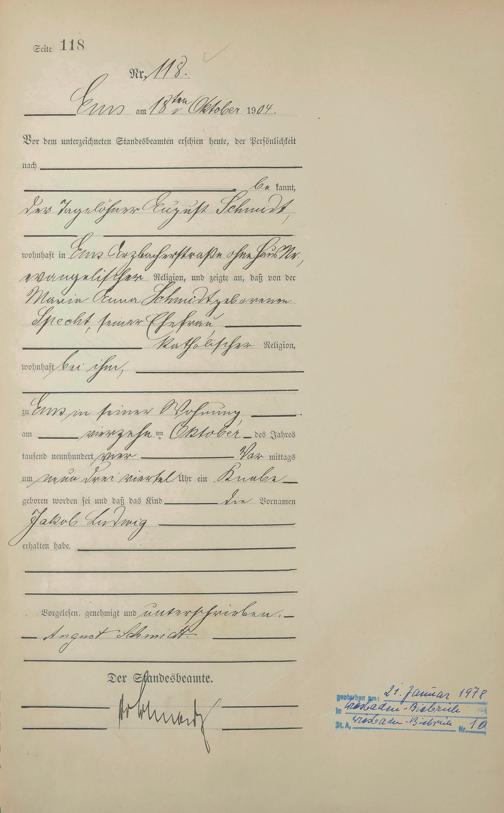 Seite 118
Nr. 118.
Ems am 18ten Oktober 1904.
Vor dem unterzeichneten Standesbeamten erschien heute, der Persönlichkeit
nach
be kannt,
der Tagelöhner August Schmidt,
wohnhaft in Ems Arzbacherstraße ohne Haus Nr,
evangelischer Religion, und zeigte an, daß von der
Maria Anna Schmidt geborenen
Specht, seiner Ehefrau
katholischer Religion,
wohnhaft bei ihm,
zu Ems in seiner Wohnung
am vierzehn ten Oktober des Jahres
tausend neunhundert vier Vor mittags
um neun drei viertel Uhr ein Knabe
geboren worden sei und daß das Kind die Vornamen
Jakob Ludwig
erhalten habe.
Vorgelesen, genehmigt und unterschrieben.
August Schmidt
Der Standesbeamte.
gestorben am: 21. Januar 1978
in Wiesbaden-Biebrich
St. A. Wiesbaden-Biebrich Nr. 10